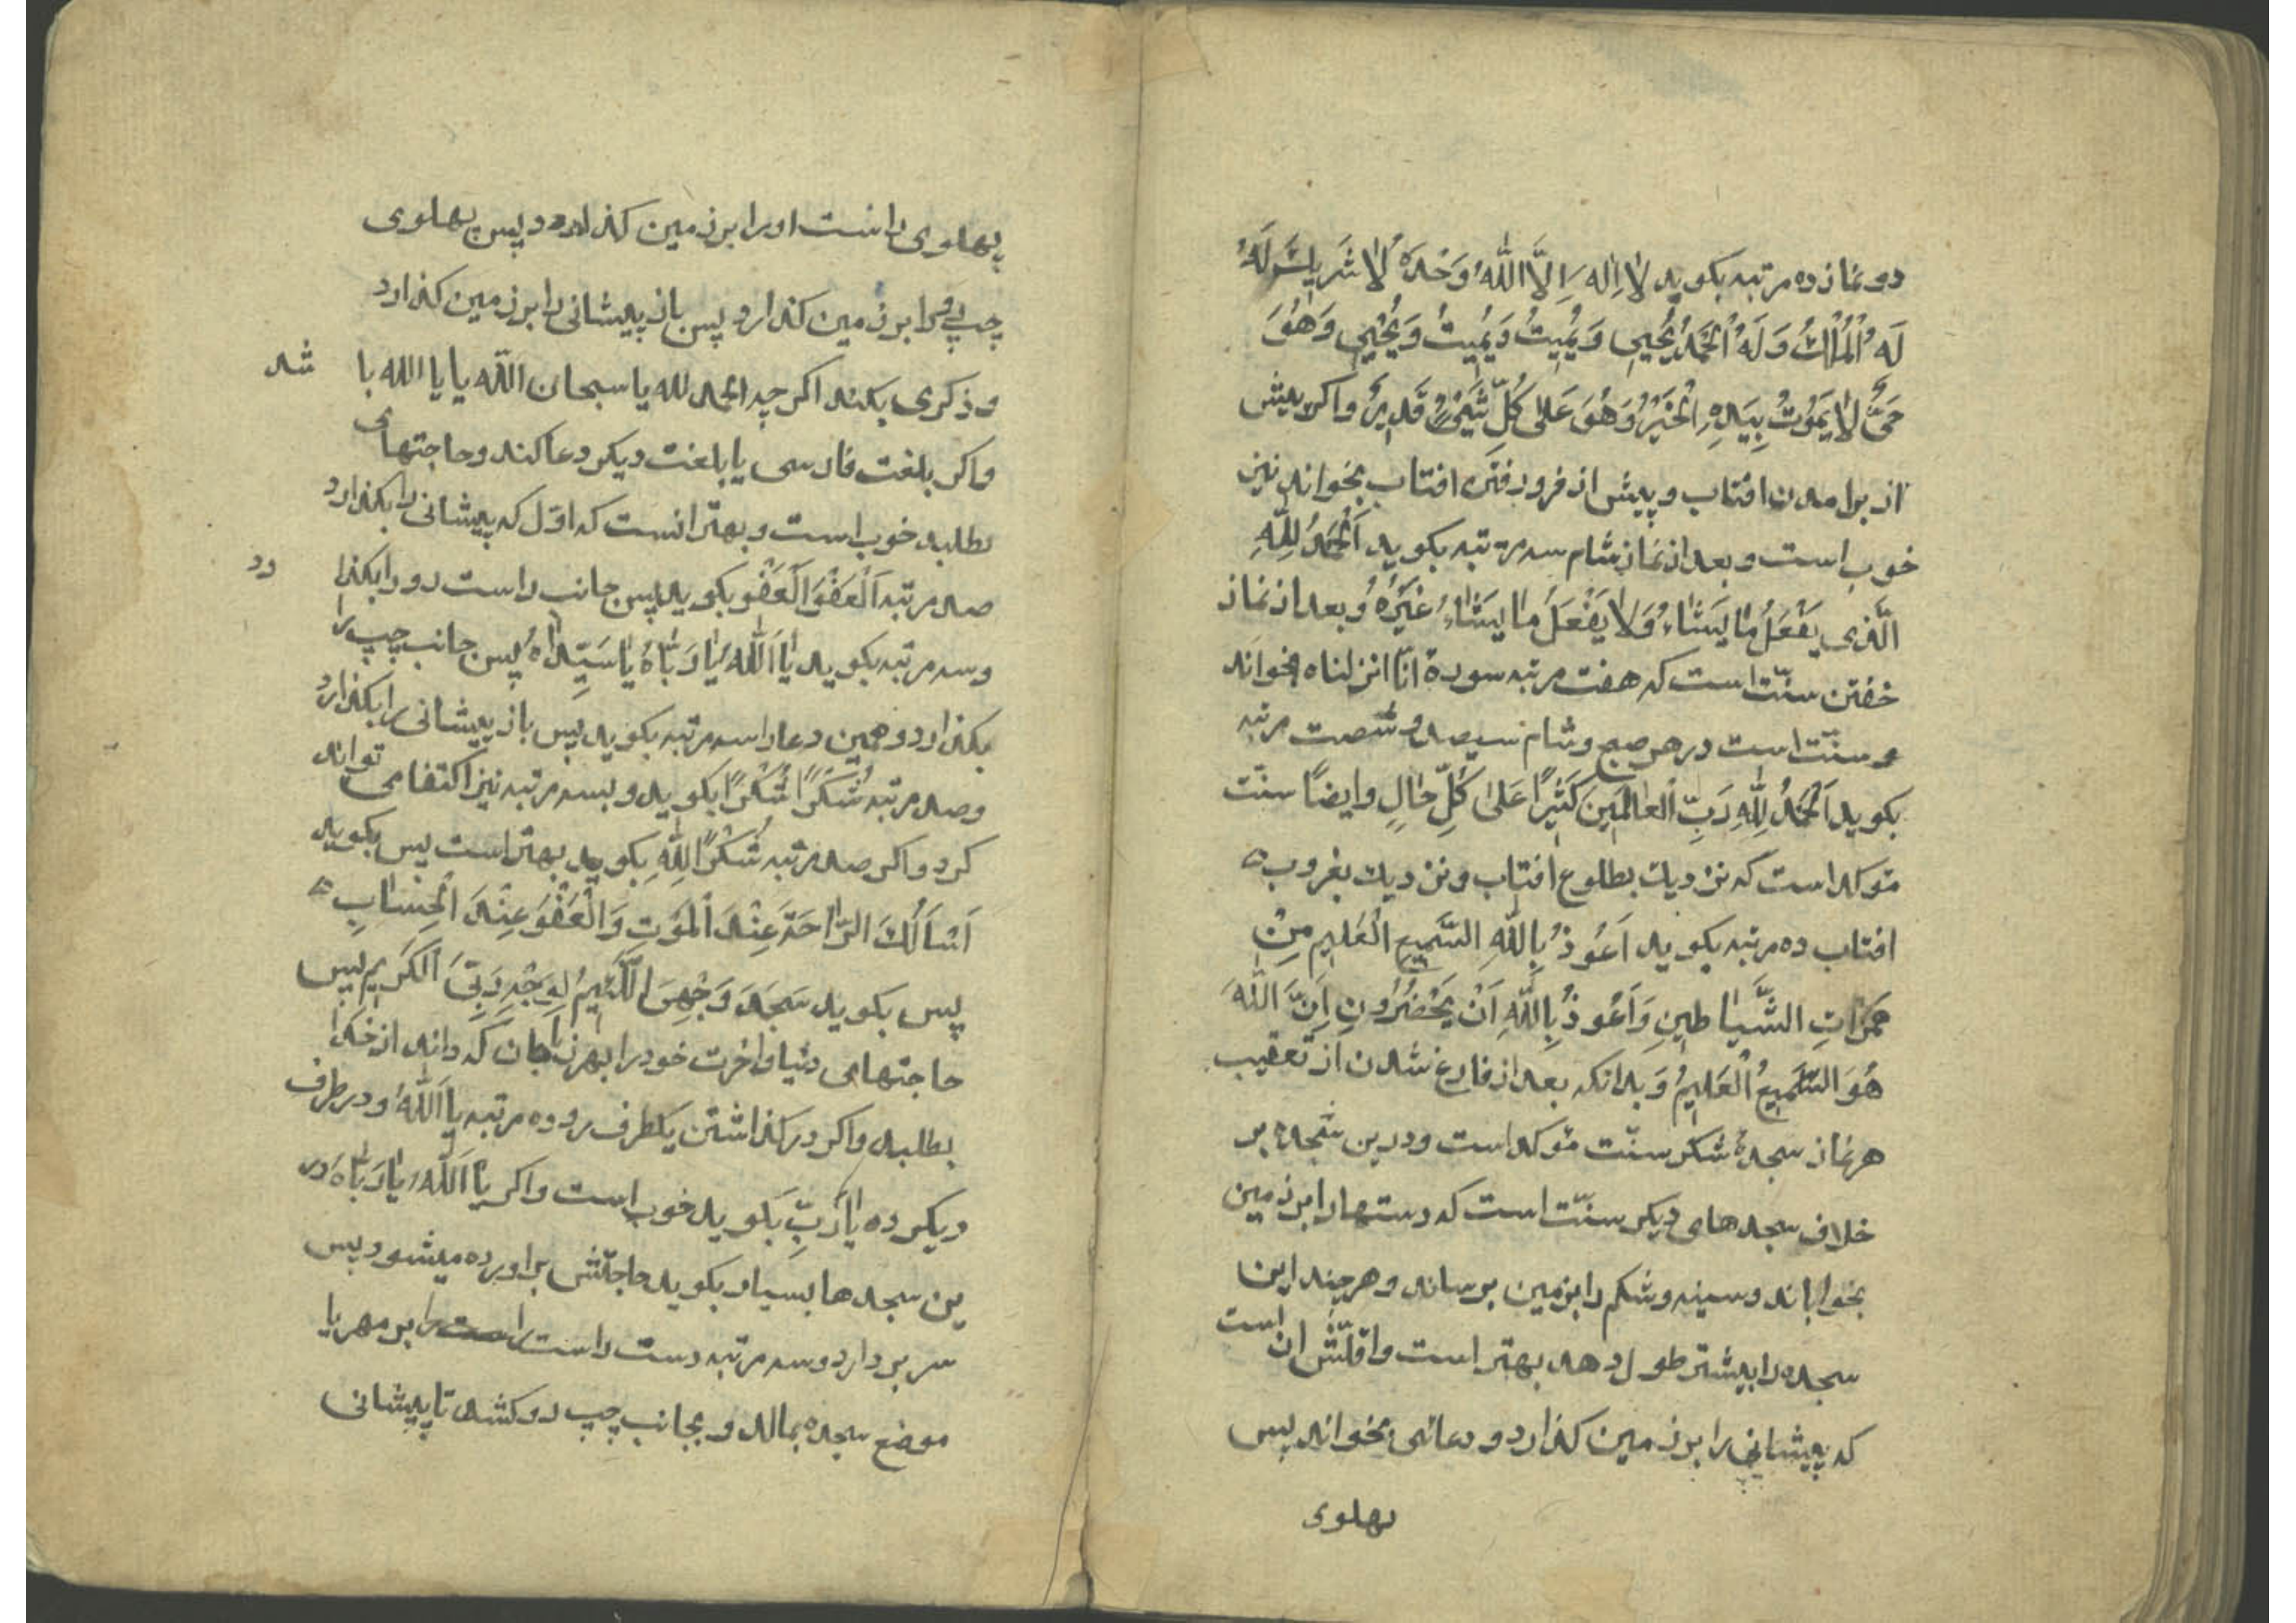 دو نماز ده مرتبه بکوید لَا اِلٰهَ اِلَّا اللّٰهُ وَحْدَهُ لَا شَرِيكَ لَهُ
لَهُ الْمُلْكُ وَلَهُ الْحَمْدُ يُحْيِي وَيُمِيتُ وَيُمِيتُ وَيُحْيِي وَهُوَ
حَيٌّ لَا يَمُوتُ بِيَدِهِ الْخَيْرُ وَهُوَ عَلٰى كُلِّ شَيْءٍ قَدِيرٌ واکر پیش
از برامدن افتاب و پیش از فرو رفتن افتاب بخواند نیز
خوب است و بعد از نماز شام سه مرتبه بکوید اَلْحَمْدُ لِلّٰهِ
الَّذِي يَفْعَلُ مَا يَشَاءُ وَلَا يَفْعَلُ مَا يَشَاءُ غَيْرُهُ و بعد از نماز
خفتن سنّت است که هفت مرتبه سورهٔ انّا انزلناه بخواند
و سنّت است در هر صبح و شام سیصد و شصت مرتبه
بکوید اَلْحَمْدُ لِلّٰهِ رَبِّ الْعَالَمِينَ كَثِيرًا عَلٰى كُلِّ حَالٍ وایضاً سنّت
مؤکد است که نزدیك بطلوع افتاب و نزدیك بغروب
افتاب ده مرتبه بکوید اَعُوذُ بِاللّٰهِ السَّمِيعِ الْعَلِيمِ مِنْ
هَمَزَاتِ الشَّيَاطِينِ وَاَعُوذُ بِاللّٰهِ اَنْ يَحْضُرُونِ اِنَّ اللّٰهَ
هُوَ السَّمِيعُ الْعَلِيمُ وَبدانکه بعد از فارغ شدن از تعقیب
هر نماز سجدهٔ شکر سنّت مؤکد است و درین سجده بر
خلاف سجدهای دیکر سنّت است که دستها را بر زمین
بخواباند و سینه و شکم را بزمین برساند و هر چند این
سجده را بیشتر طول دهد بهتر است و اقلّش ان است
که پیشانی را بر زمین کذارد و دعائی بخواند پس
پهلوی
پهلوی راست او را بر زمین کذارد پس پهلوی
چپ را بر زمین کذارد پس باز پیشانی را بر زمین کذارد
و ذکری بکند اکر چه الحمد لله یا سبحان الله یا یا الله با شد
واکر بلغت فارسی یا بلغت دیکر دعا کند و حاجتهای
بطلبد خوب است و بهتر انست که اوّل که پیشانی را بکذارد
صد مرتبه اَلْعَفْوَ اَلْعَفْوَ بکوید پس جانب راست رو را بکذا رد
و سه مرتبه بکوید يَا اَللّٰهُ يَا رَبَّاهُ يَا سَيِّدَاهُ پس جانب چپ را
بکذارد و همین دعا را سه مرتبه بکوید پس باز پیشانی را بکذارد
و صد مرتبه شُكْرًا شُكْرًا بکوید و بسه مرتبه نیز اکتفا می تواند
کرد و اکر صد مرتبه شُكْرًا لِلّٰهِ بکوید بهتر است پس بکوید
اَسْاَلُكَ الرَّاحَةَ عِنْدَ الْمَوْتِ وَالْعَفْوَ عِنْدَ الْحِسَابِ
پس بکوید سَجَدَ وَجْهِيَ اللَّئِيمُ لِوَجْهِ رَبِّيَ الْكَرِيمِ پس
حاجتهای دنیا و اخرت خود را بهر زبان که داند از خدا
بطلبد و اکر در کذاشتن یکطرف رو ده مرتبه يَا اَللّٰهُ و در طرف
دیکر ده يَا رَبِّ بکوید خوب است و اکر يَا اَللّٰهُ يَا رَبَّاهُ در
ین سجدها بسیار بکوید حاجتش براورده میشود پس
سر بر دارد و سه مرتبه دست راست را بر مهر یا
موضع سجده بمالد و بجانب چپ رو کشد تا پیشانی